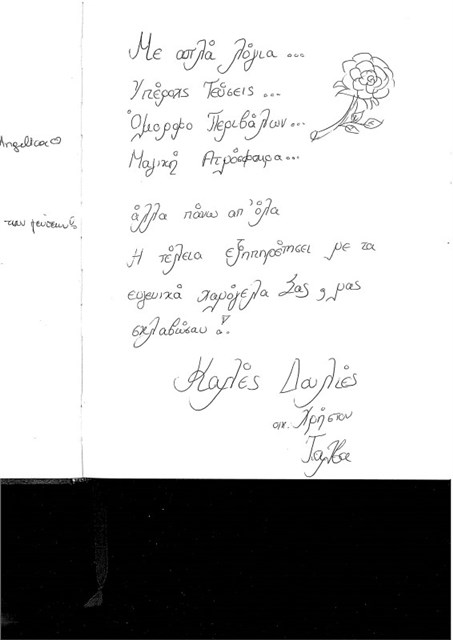 Με απλά λόγια...
Υπέροχες Γεύσεις...
Όμορφο Περιβάλων...
Μαγική Ατμόσφαιρα...
άλλα πάνω απ' όλα
Η τέλεια εξηπηρέτησει με τα
ευγενικά χαμόγελα Σας, μας
σκλάβωσαν!
Καλές Δουλιές
οικ. Χρήστου
Angelica
των γεύσεων